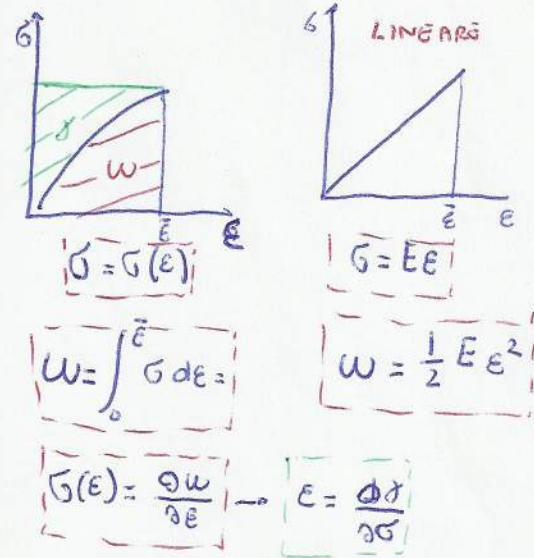 σ
γ
ω
ε̄
ε
σ = σ(ε)
ω = ∫₀^ε̄ σ dε =
σ(ε) = ∂ω/∂ε → ε = ∂γ/∂σ
LINEARE
σ
ε̄
ε
σ = Eε
ω = 1/2 E ε²